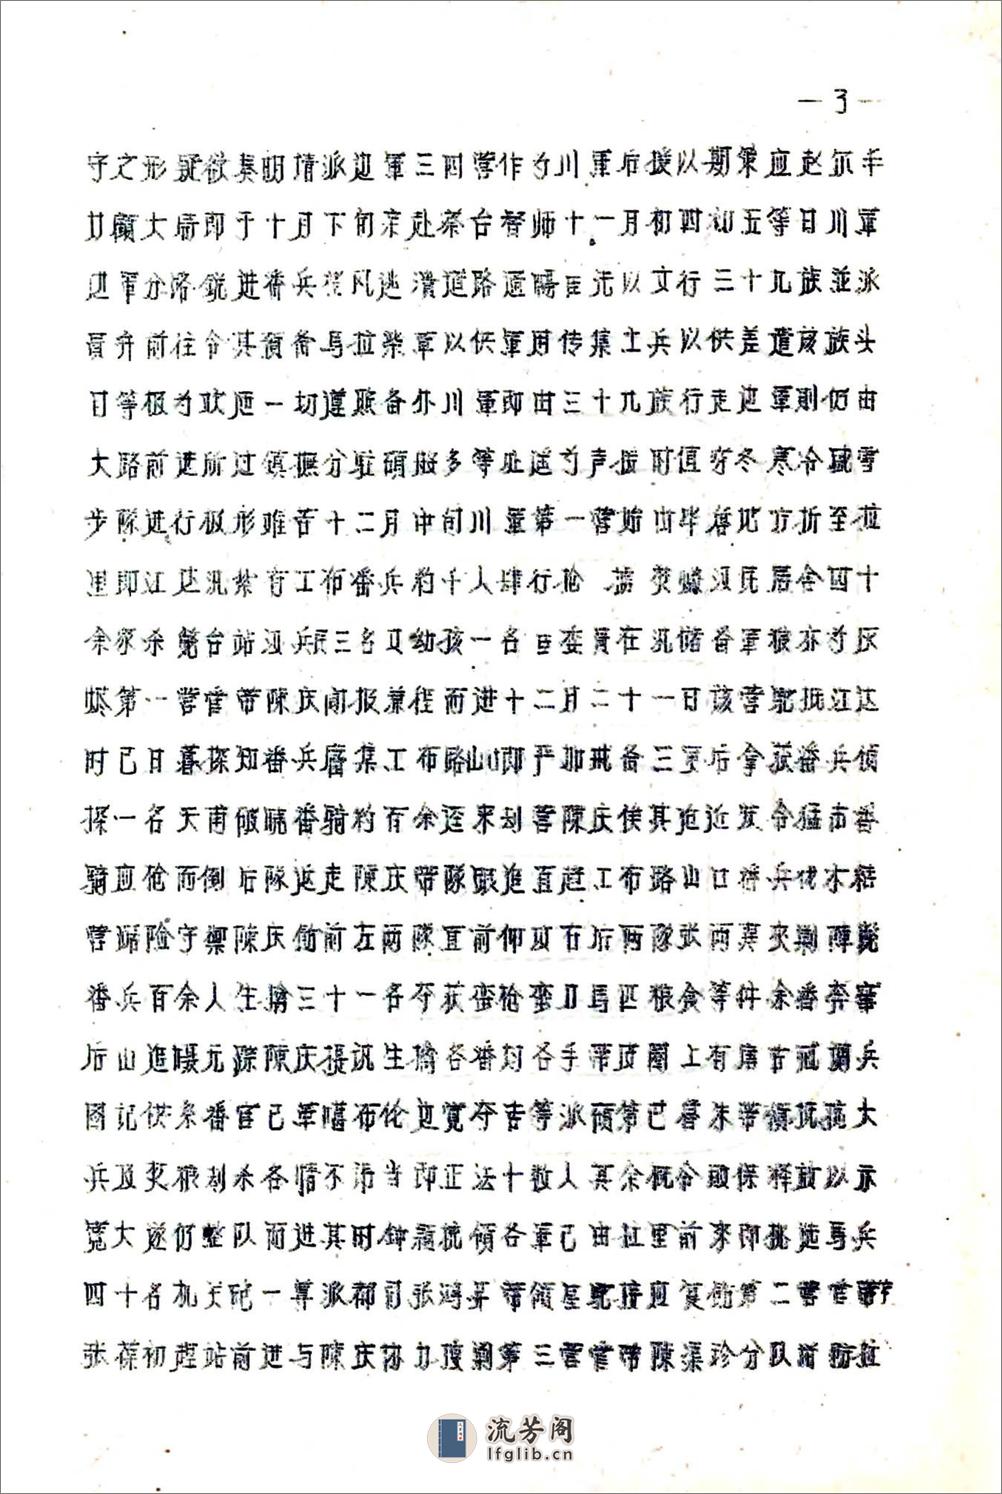 —3—
守之形疑欲奏明請派边軍三四营作为川軍后援以期策应赵尔丰
力顧大局即于十月下旬亲赴察台督师十一月初四初五等日川軍
边軍分路銳进番兵望风逃潰道路通暢臣先以文行三十九族並派
晋升前往令其預备馬拉柴草以供軍用传集土兵以供差遣該族头
目等极为欢迎一切遵照备办川軍即由三十九族行走边軍則仍由
大路前进所过鎮撫分駐碩般多等处遥为声援时值穷冬寒冷風雪
步隊进行极形难苦十二月中旬川軍第一营始由毕唐地方折至拉
里即江达汛禁有工布番兵約千人肆行枪 擄 焚燒汛民居舍四十
余家杀斃台站汛兵三名及幼孩一名臣委員在汛储备軍粮亦为灰
烬第一营管带陳庆闻报兼程而进十二月二十一日該营馳抵江达
时已日暮探知番兵屯集工布路山即严加戒备三更后拿获番兵侦
探一名天甫破曉番騎約百余迳来刦营陳庆俟其迫近发令猛击番
騎应枪而倒后隊返走陳庆带隊跟进直赶工布路山口番兵伐木結
营踞险守禦陳庆飭前左两隊直前仰攻右后两隊张两翼夹剿陣斃
番兵百余人生擒三十一名夺获蛮枪蛮刀馬匹粮食等件余番奔窜
后山追躡无踪陳庆提讯生擒各番剀各手带皮圈上有唐古忒調兵
图記供系番官己軍噶布伦边覚夺吉等派頗第巴喜朱带領抵抗大
兵及焚粮刦杀各情不讳当即正法十数人其余概令取保释放以示
寬大遂仍整队而进其时钟颖統領各軍已由拉里前来即挑选馬兵
四十名机关砲一尊派都司张鸿昇带領星馳接应复飭第二营管带
张葆初趱站前进与陳庆协力搜剿第三营管带陳渠珍分队駐防拉
流芳阁
lfglib.cn